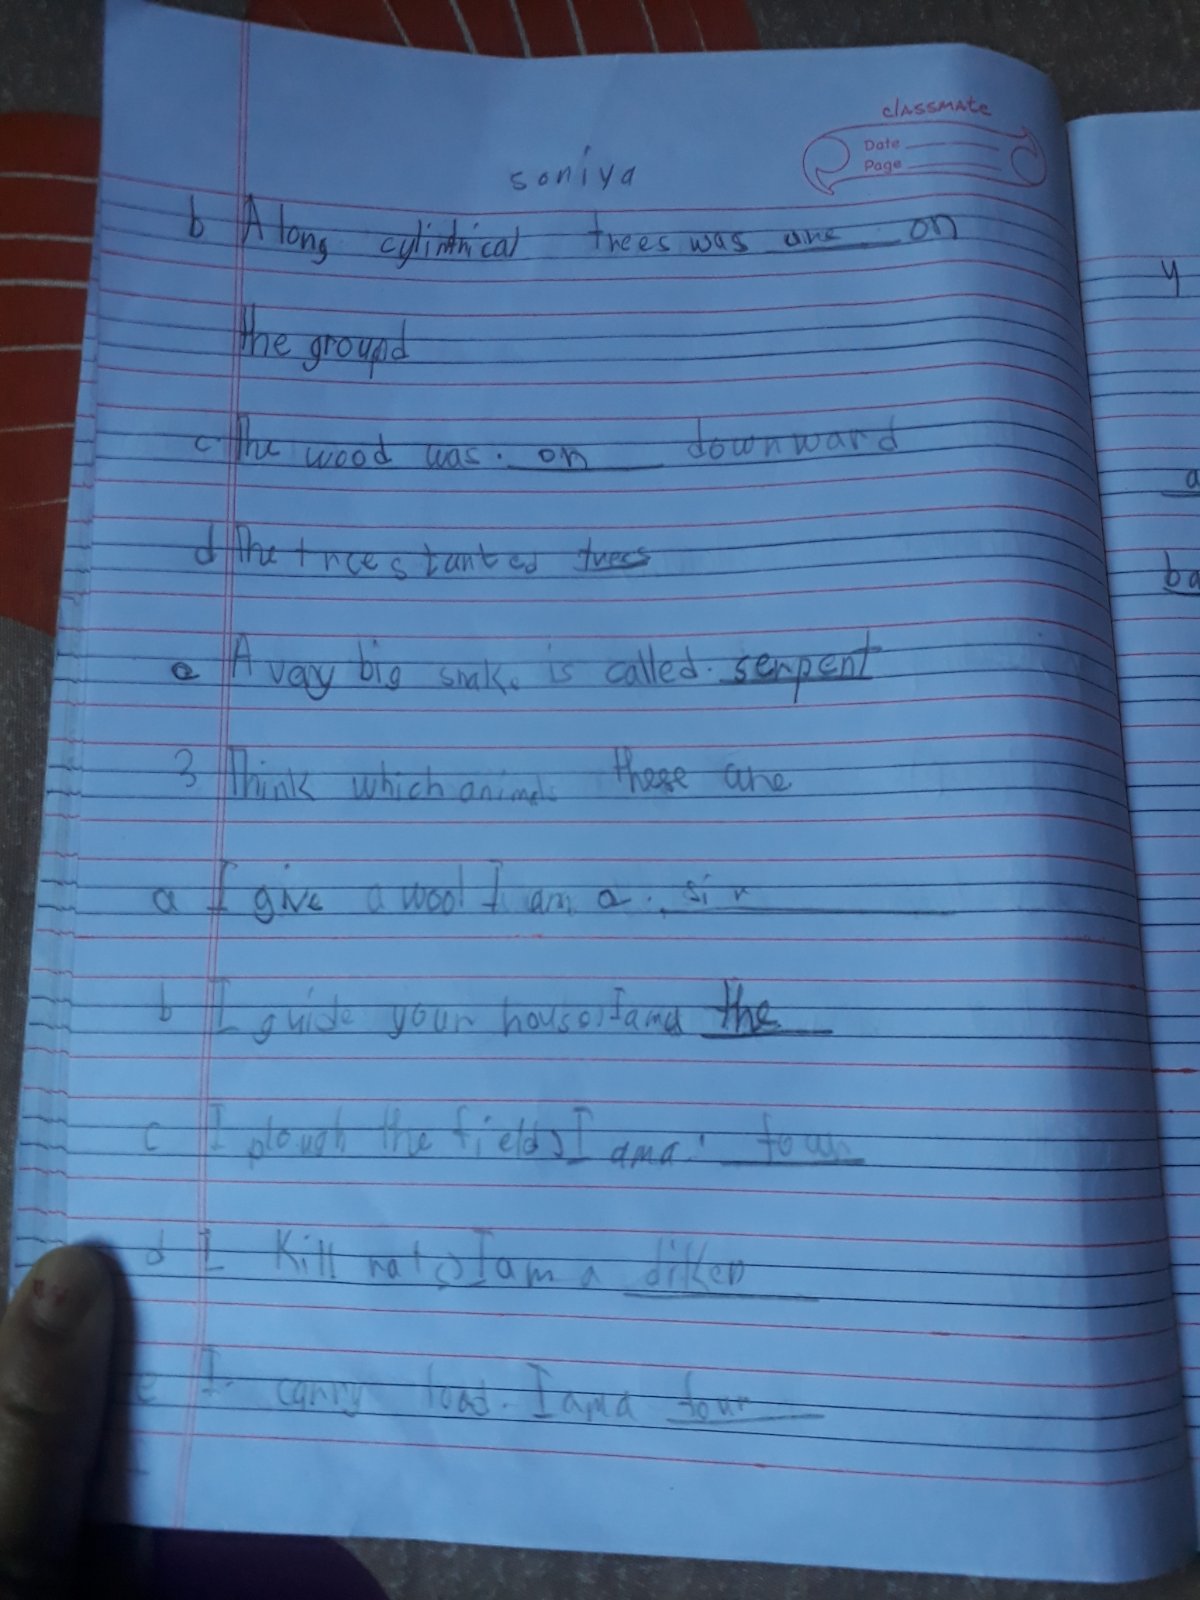 classmate
Date
Page
soniya
b A long cylinthrical trees was are on
the ground
c. The wood was. on downward
d The trees tanted trees
e A vary big snake is called. serpent
3 Think which animals these are
a I give a wool I am a. sir
b I guide your house, I ama the
c I plough the field, I ama. four
d I kill rats, I am a diken
e I. carry load. I ama four
y
a
ba